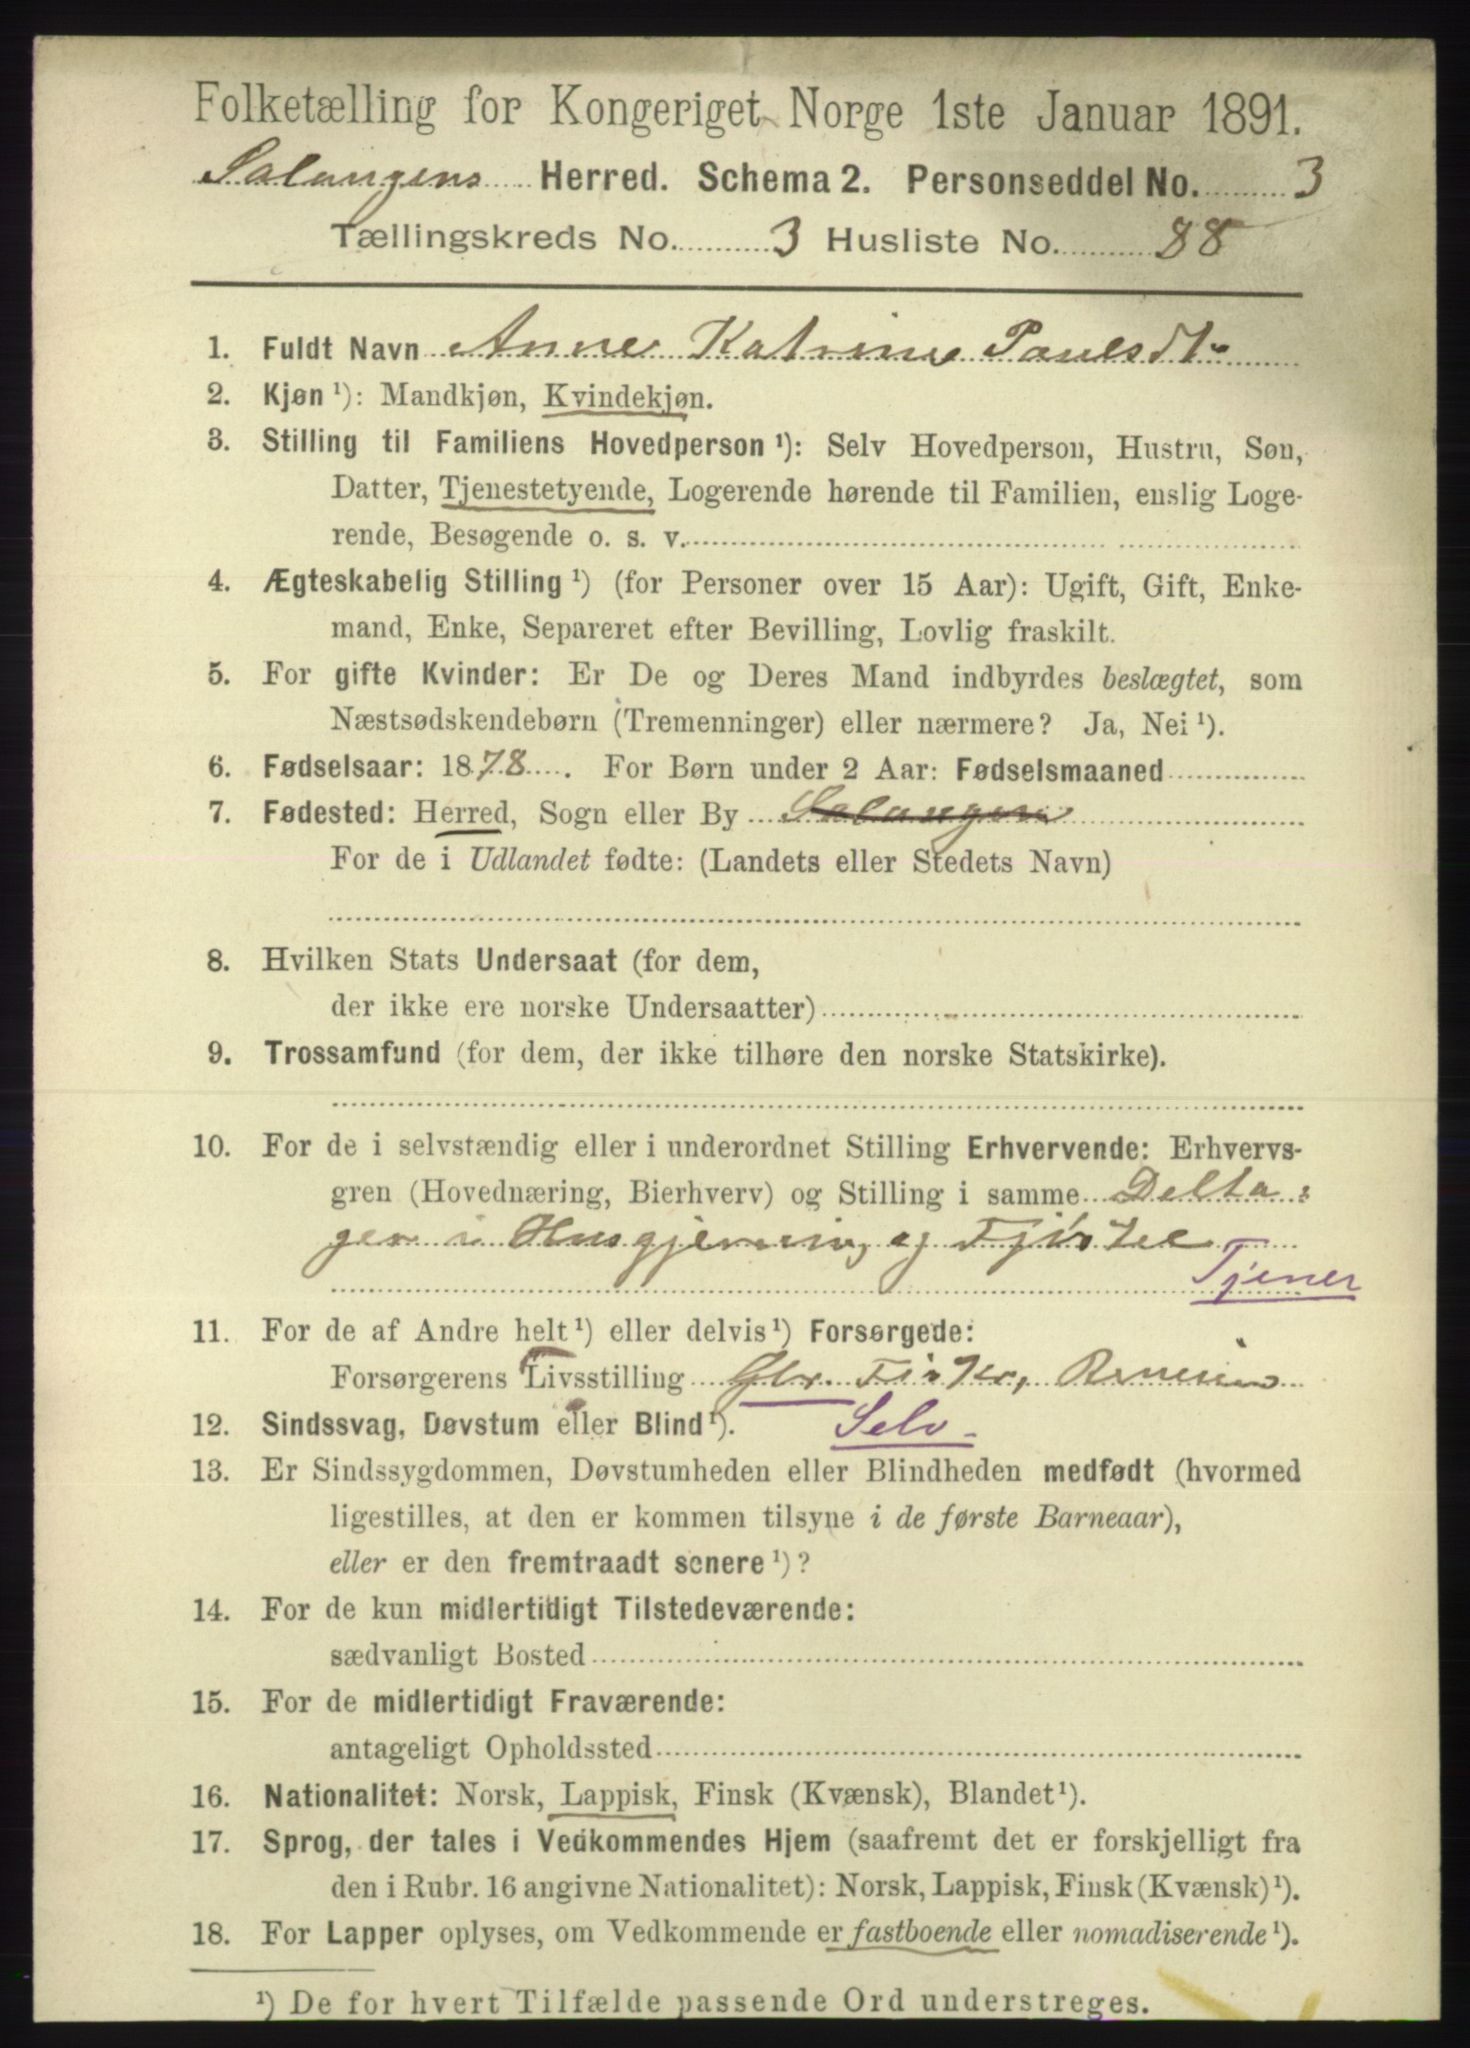 Folketælling for Kongeriget Norge 1ste Januar 1891.
Salangens Herred. Schema 2. Personseddel No. 3
Tællingskreds No. 3 Husliste No. 88
1. Fuldt Navn Anne Katrine Paulsdt.
2. Kjøn ¹): Mandkjøn, Kvindekjøn.
3. Stilling til Familiens Hovedperson ¹): Selv Hovedperson, Hustru, Søn,
Datter, Tjenestetyende, Logerende hørende til Familien, enslig Loge-
rende, Besøgende o. s. v.
4. Ægteskabelig Stilling ¹) (for Personer over 15 Aar): Ugift, Gift, Enke-
mand, Enke, Separeret efter Bevilling, Lovlig fraskilt.
5. For gifte Kvinder: Er De og Deres Mand indbyrdes beslægtet, som
Næstsødskendebørn (Tremenninger) eller nærmere? Ja, Nei ¹).
6. Fødselsaar: 1878. For Børn under 2 Aar: Fødselsmaaned
7. Fødested: Herred, Sogn eller By Salangen
For de i Udlandet fødte: (Landets eller Stedets Navn)
8. Hvilken Stats Undersaat (for dem,
der ikke ere norske Undersaatter)
9. Trossamfund (for dem, der ikke tilhøre den norske Statskirke).
10. For de i selvstændig eller i underordnet Stilling Erhvervende: Erhvervs-
gren (Hovednæring, Bierhverv) og Stilling i samme Delta:
ger i Husgjerning og Fjøstel
Tjener
11. For de af Andre helt ¹) eller delvis ¹) Forsørgede:
Forsørgerens Livsstilling Gbr. Fisker,
12. Sindssvag, Døvstum eller Blind ¹). Selv.
13. Er Sindssygdommen, Døvstumheden eller Blindheden medfødt (hvormed
ligestilles, at den er kommen tilsyne i de første Barneaar),
eller er den fremtraadt senere ¹)?
14. For de kun midlertidigt Tilstedeværende:
sædvanligt Bosted
15. For de midlertidigt Fraværende:
antageligt Opholdssted
16. Nationalitet: Norsk, Lappisk, Finsk (Kvænsk), Blandet ¹).
17. Sprog, der tales i Vedkommendes Hjem (saafremt det er forskjelligt fra
den i Rubr. 16 angivne Nationalitet): Norsk, Lappisk, Finsk (Kvænsk) ¹).
18. For Lapper oplyses, om Vedkommende er fastboende eller nomadiserende ¹).
¹) De for hvert Tilfælde passende Ord understreges.